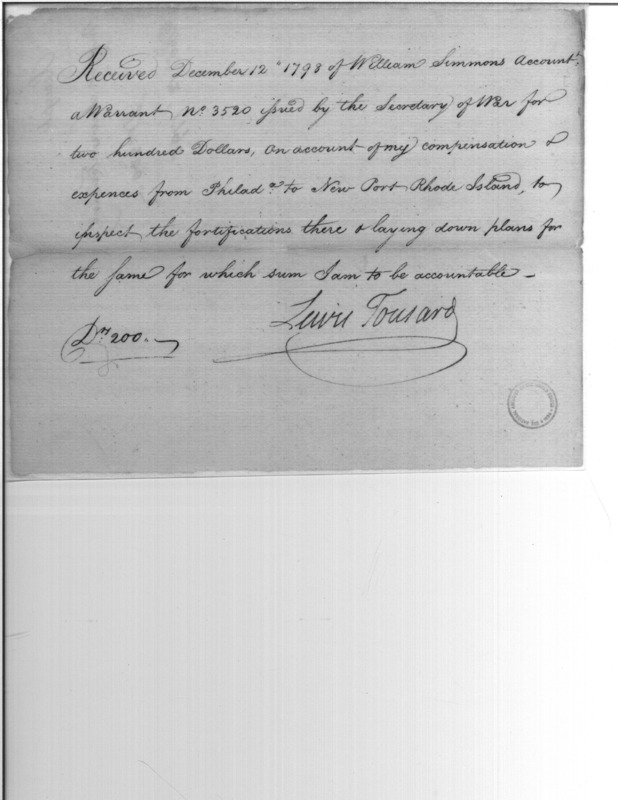 Received December 12th 1798 of William Simmons Accountt.
a Warrant No. 3520 issued by the Secretary of War for
two hundred Dollars, on account of my compensation &
expences from Philada. to New Port Rhode Island, to
inspect the fortifications there & laying down plans for
the same for which sum I am to be accountable –
Lewis Tousard
Drs 200.–